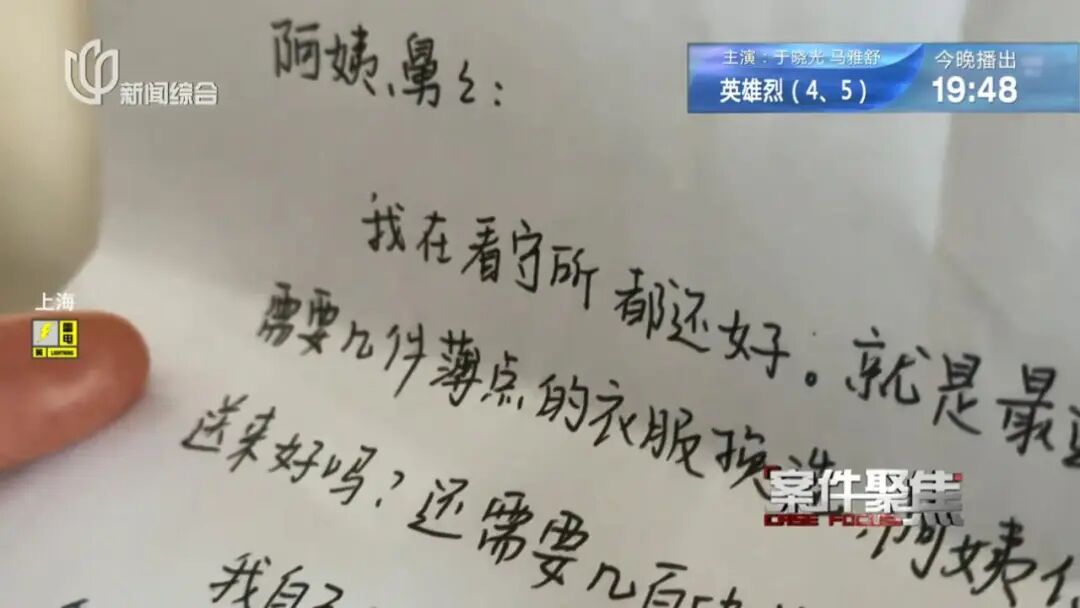 新闻综合
主演：于晓光 马雅舒
英雄烈（4、5）
今晚播出
19:48
上海
雷电
黄 LIGHTNING
阿姨、舅々：
我在看守所都还好。就是最
需要几件薄点的衣服换洗
阿姨
送来好吗？还需要几百
我自
案件聚焦
CASE FOCUS